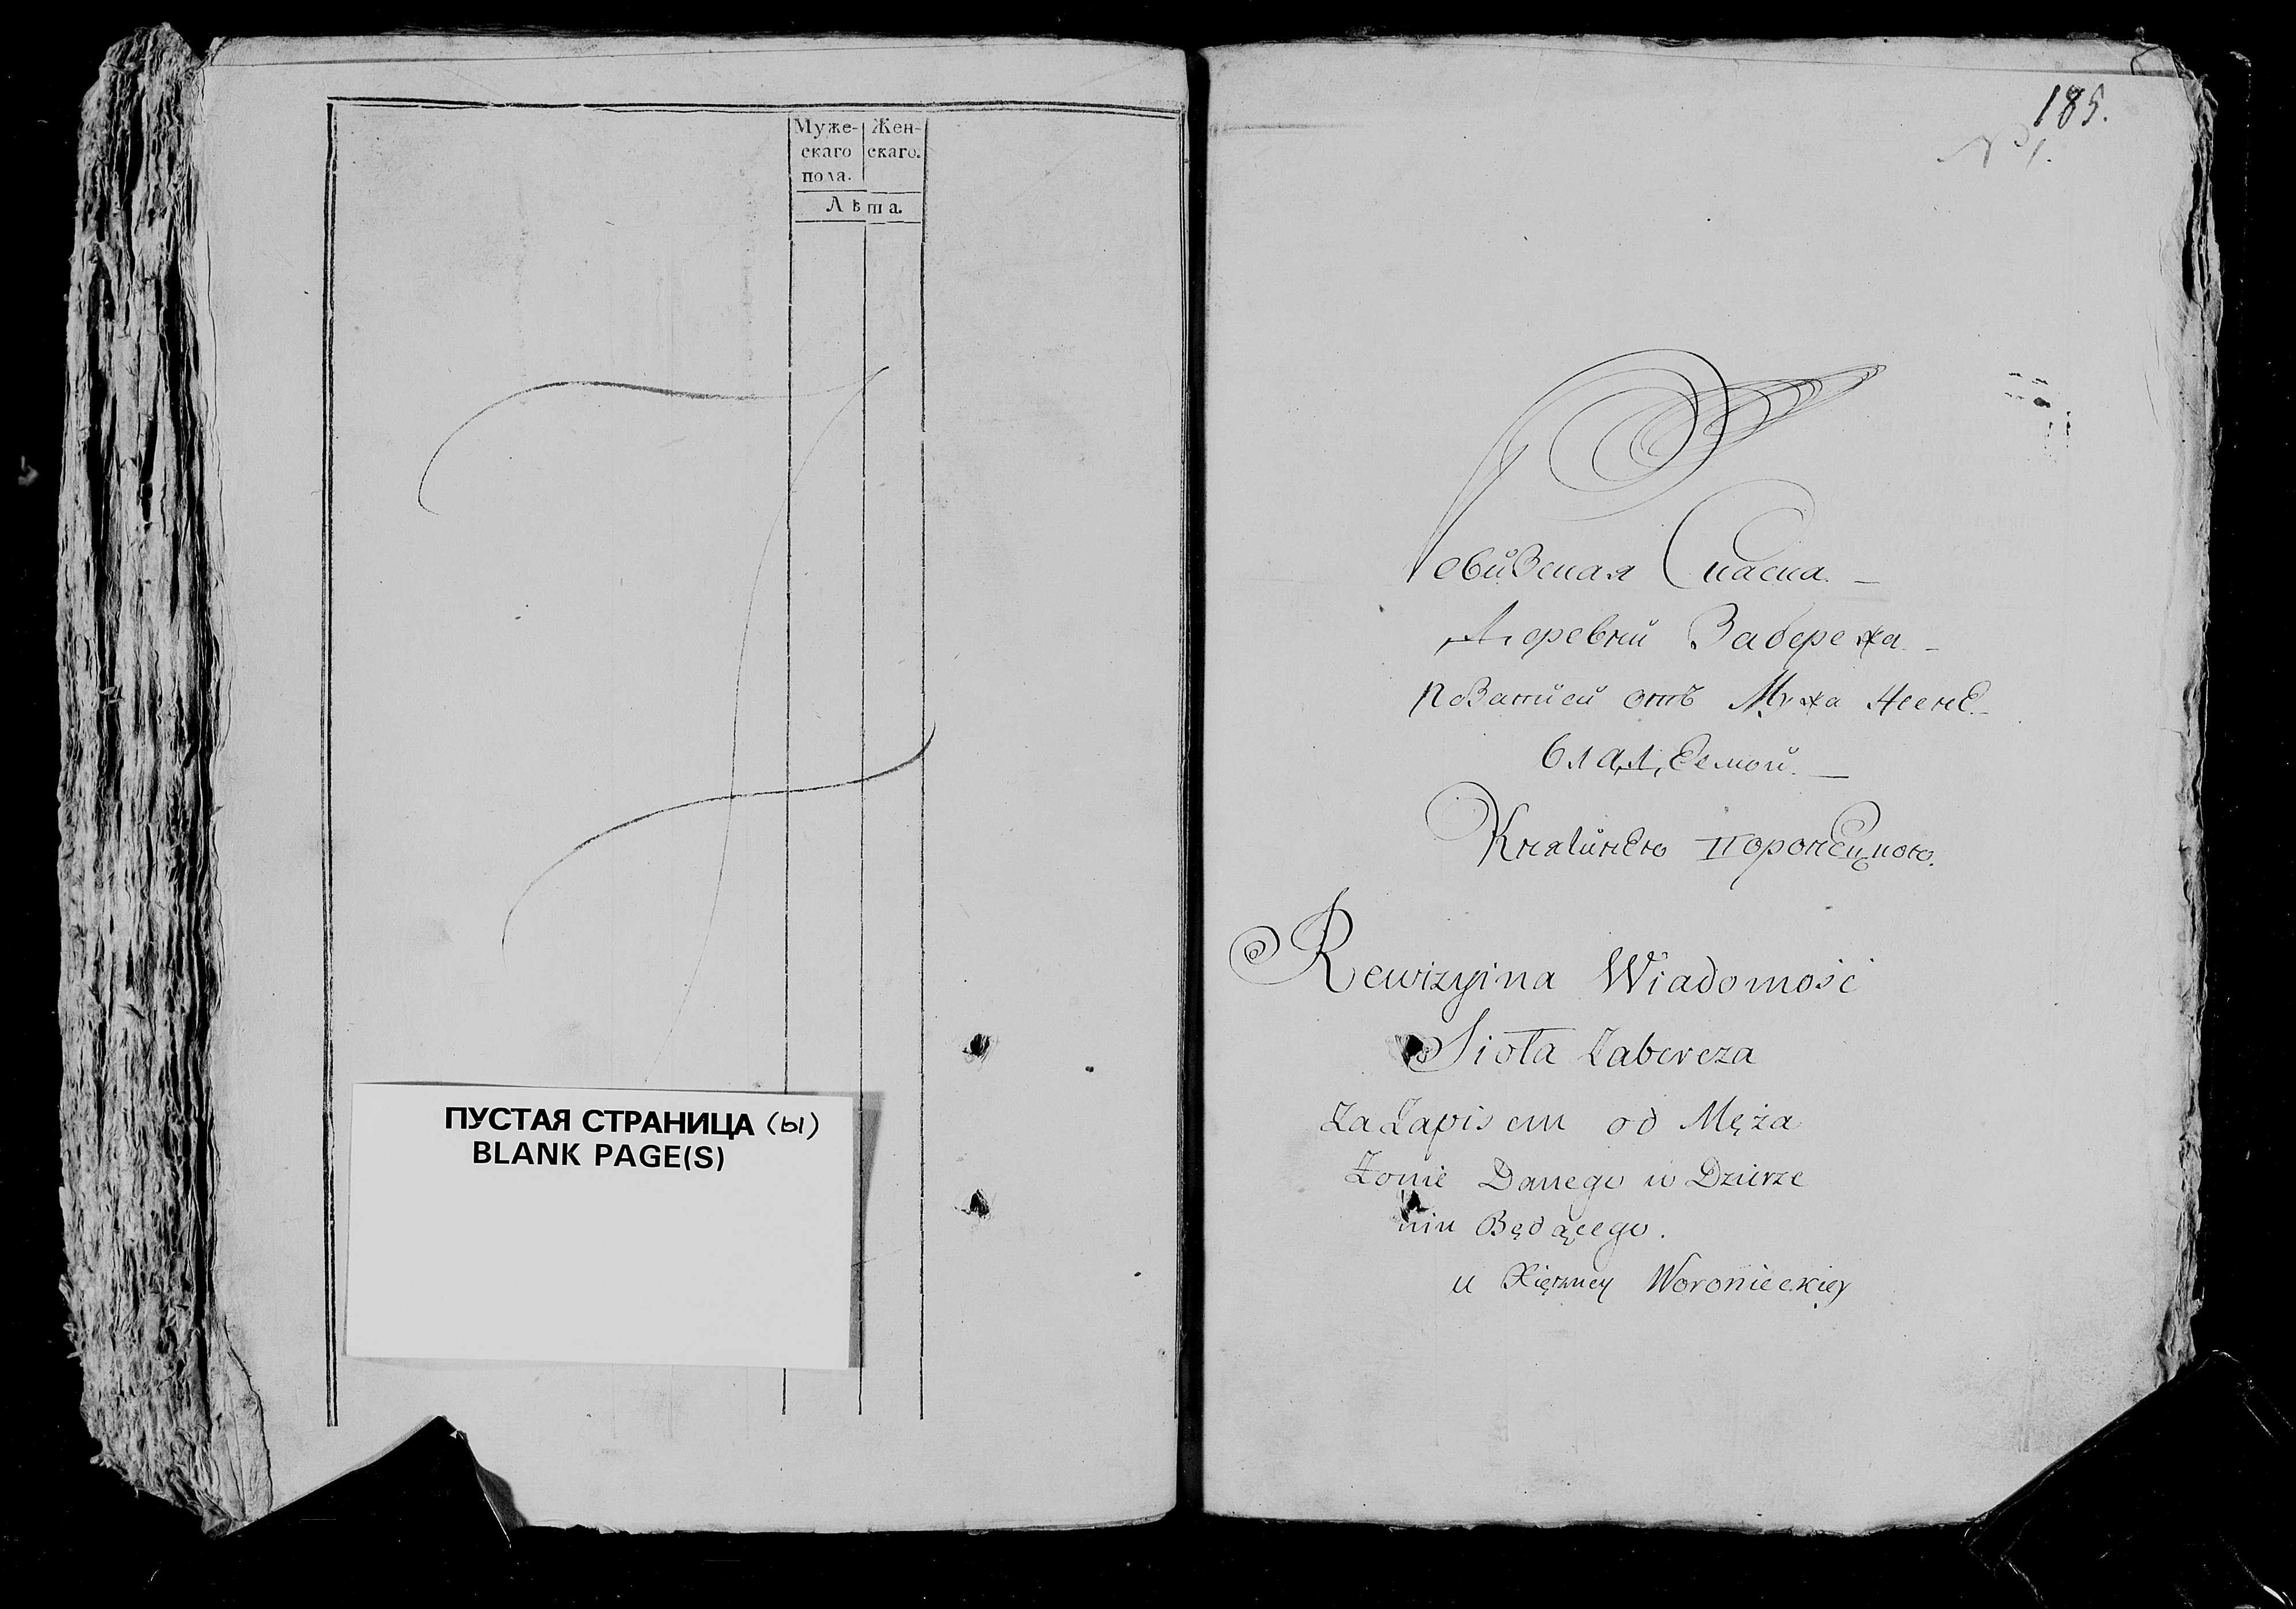 Муже-
скаго
пола.
Жен-
скаго.
Лѣта.
ПУСТАЯ СТРАНИЦА (ы)
BLANK PAGE(S)
185.
№ 1.
Ревизская Скаска.
Деревни Забережа
отъ Мужа Жене
владеемой.
Rewizyina Wiadomosć
Sioła Zabereza
Za Zapisem od Męża
Żonie Danego w Dzierze
niu Będącego.
u Xięzney Woronieckiey